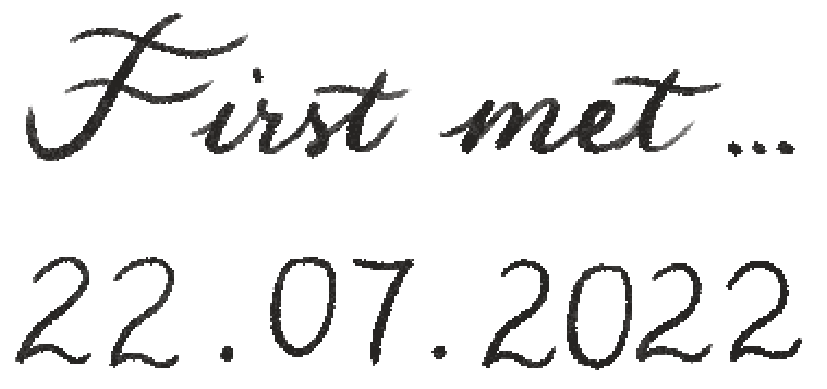 First met...
22.07.2022